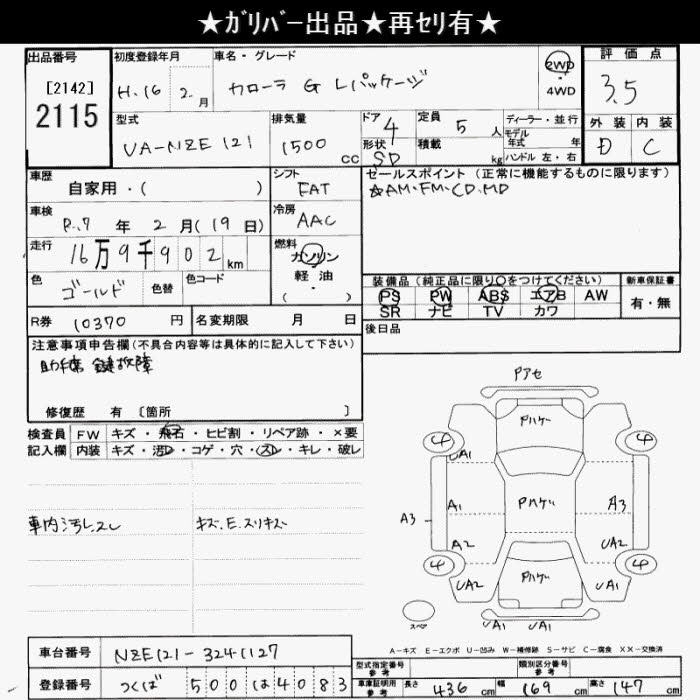 ★ｶﾞﾘﾊﾞｰ出品★再ｾﾘ有★
出品番号
[2142]
2115
初度登録年月
H.16 2.月
車名・グレード
カローラ G Lパッケージ
2WD
・
4WD
評価点
3.5
型式
UA-NZE121
排気量
1500 cc
ドア 4
形状 SD
定員 5 人
積載 kg
ディーラー・並行
モデル年式 年
ハンドル 左・右
外装 内装
D C
車歴
自家用・( )
シフト
FAT
セールスポイント (正常に機能するものに限ります)
☆AM・FM・CD・MD
車検
R.7 年 2 月(19日)
冷房
AAC
走行
16万9千902km
燃料
ガソリン
・
軽油
・
( )
色
ゴールド
色替
色コード
装備品 (純正品に限り○をつけてください)
PS PW ABS エアB AW
SR ナビ TV カワ
新車保証書
有・無
R券 10370 円
名変期限 月 日
後日品
注意事項申告欄(不具合内容等は具体的に記入して下さい)
助手席 鍵故障
修復歴 有 〔箇所 〕
検査員 FW キズ・飛石・ヒビ割・リペア跡・×要
記入欄 内装 キズ・汚レ・コゲ・穴・スレ・キレ・破レ
車内汚レ.スレ
キズ.E.スリキズ
Pアセ
Pハゲ
4 4
UA1
A1 Pハゲ A3
A3
A2 UA2
4 4
UA2 Pハゲ UA1
UA1 UA1
スペア
A－キズ E－エクボ U－凹み W－補修跡 S－サビ C－腐食 XX－交換済
車台番号 NZE121-3241127
型式指定番号 参考
類別区分番号 参考
登録番号 つくば 500 は 4083
車庫証明用 参考 長さ 436 cm 幅 169 cm 高さ 147 cm